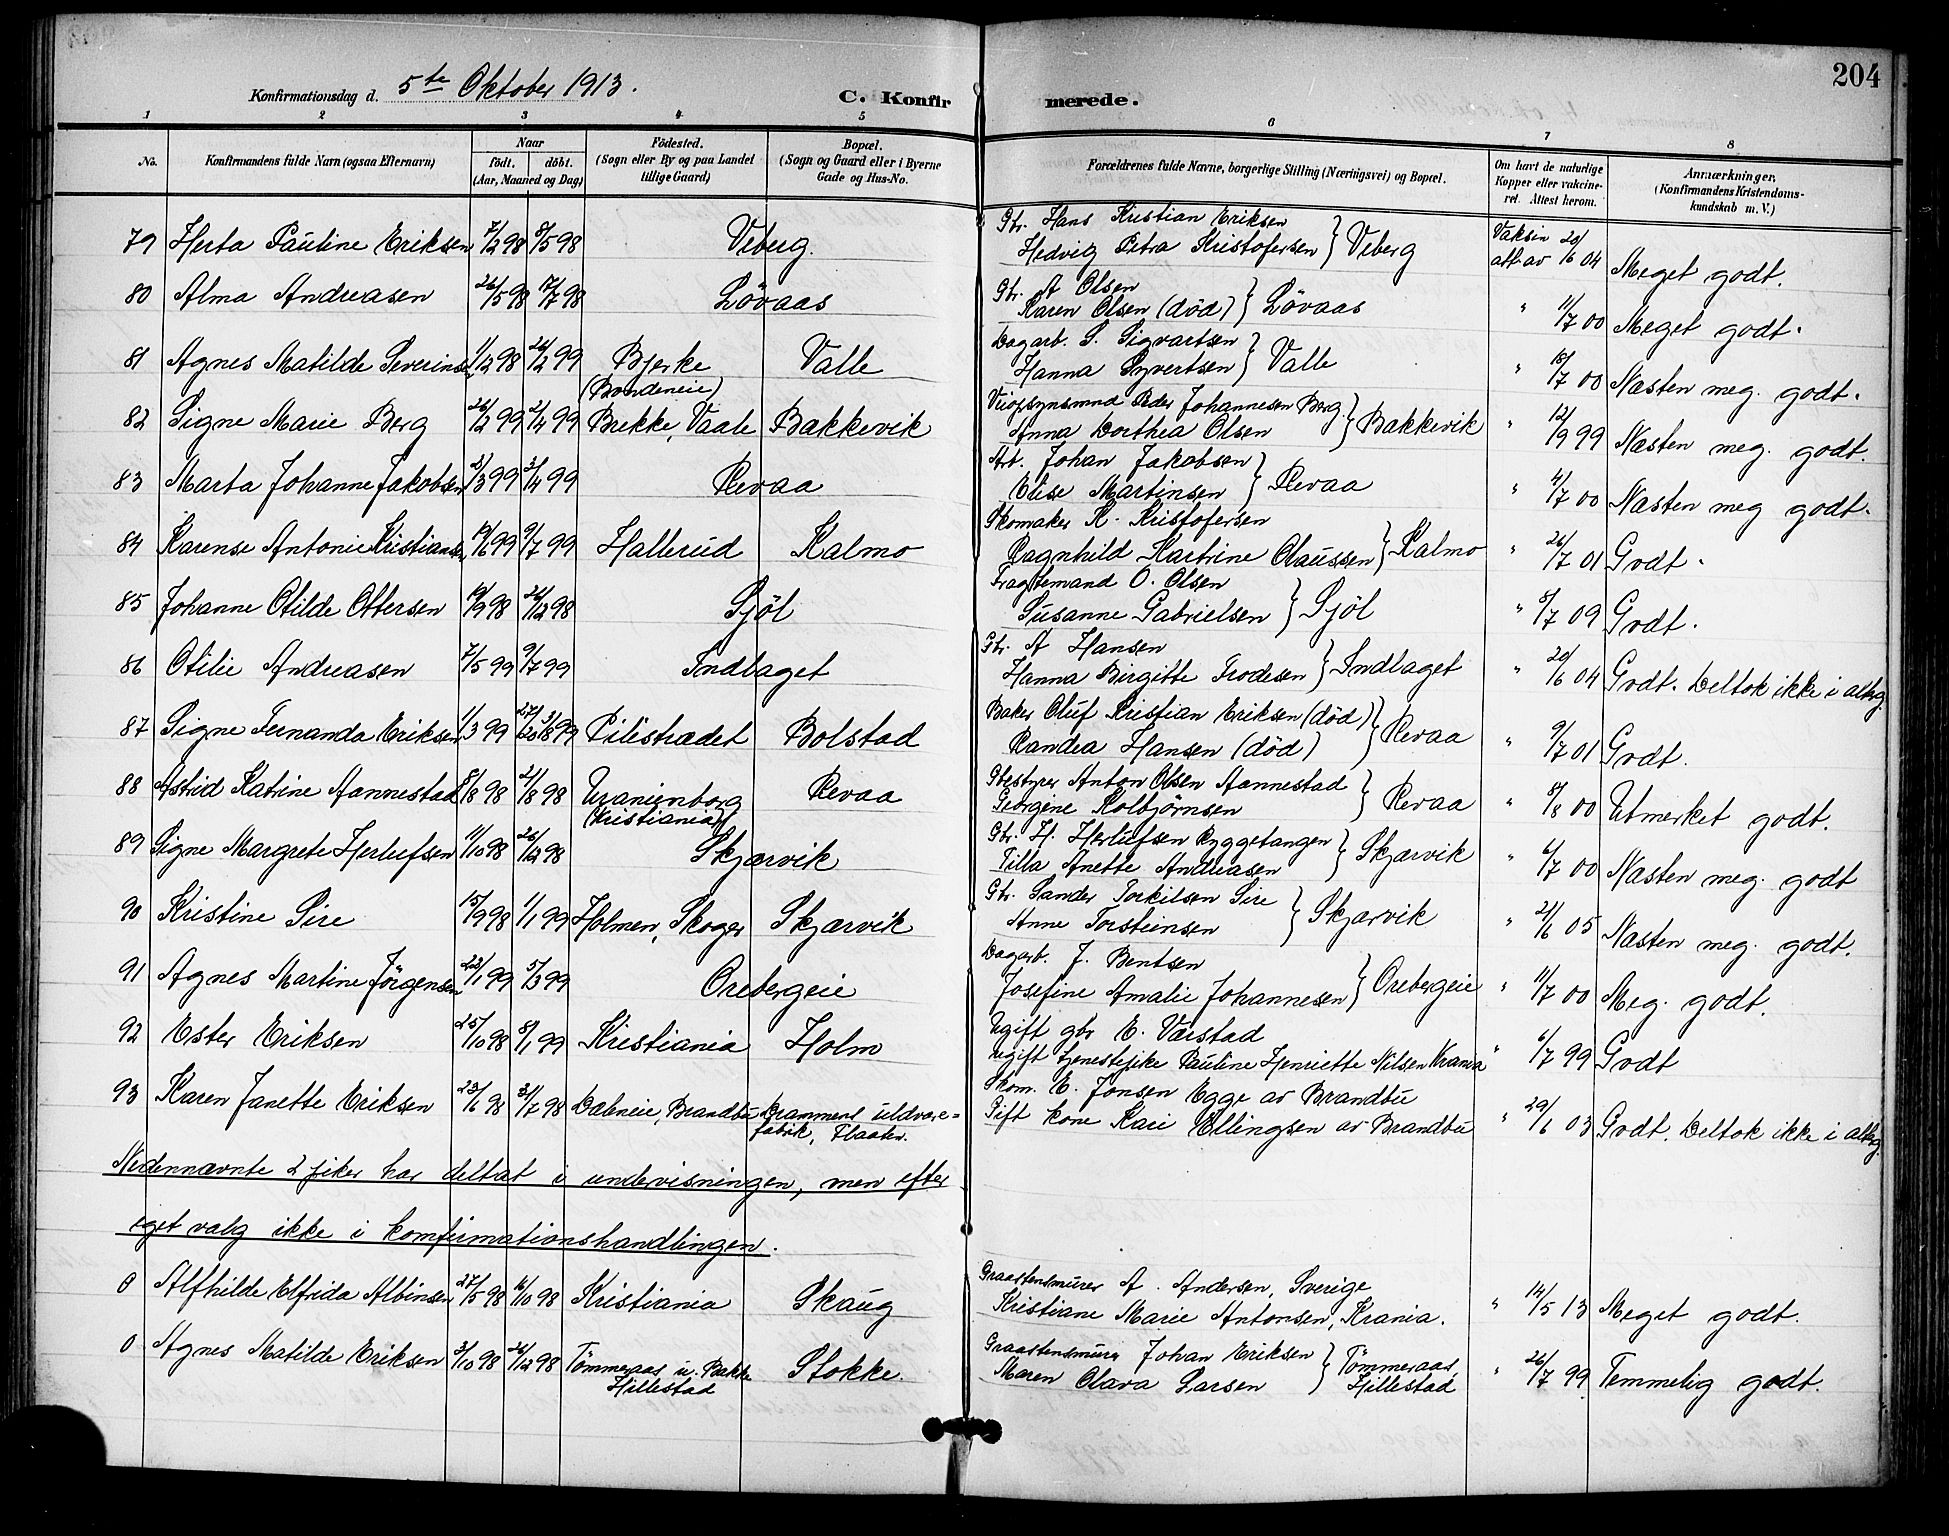 204
Konfirmationsdag d. 5te Oktober 1913.
C. Konfirmerede.
1 2 3 4 5 6 7 8
No.
Konfirmandens fulde Navn (ogsaa Efternavn)
Naar
födt. döbt.
(Aar, Maaned og Dag)
Födested.
(Sogn eller By og paa Landet
tillige Gaard)
Bopæl.
(Sogn og Gaard eller i Byerne
Gade og Hus-No.
Forældrenes fulde Navne, borgerlige Stilling (Næringsvei) og Bopæl.
Om havt de naturlige
Kopper eller vakcine-
ret. Attest herom.
Anmærkninger.
(Konfirmandens Kristendoms-
kundskab m. V.)
79 Herta Pauline Eriksen 7/2 98 8/5 98 Viberg.
Gbr. Hans Kristian Eriksen
Hedvig Petra Kristofersen } Viberg
Vaksin
att. av 20/6 04 Meget godt.
80 Alma Andreasen 26/5 98 17/7 98 Lövaas
Gbr. A Olsen
Karen Olsen (död) } Lövaas " 11/7 00 Meget godt.
81 Agnes Matilde Severinsen 1/12 98 26/2 99 Bjerke Valle
(Bondeneie)
Dagarb. S. Sigvartsen
Hanna Syvertsen } Valle " 18/7 00 Næsten meg. godt.
82 Signe Marie Berg 26/2 99 2/4 99 Brekke, Vaale Bakkevik
Veiopsynsmnd Peder Johannesen Berg
Anna Dorthea Olsen } Bakkevik " 12/9 99 Næsten meg. godt.
83 Marta Johanne Jakobsen 3/3 99 3/4 99 Revaa
Arb. Johan Jakobsen
Elise Martinsen } Revaa " 4/7 00 Næsten meg godt.
84 Karense Antonie Kristiansen 10/6 99 9/7 99 Hallerud Kalmo
Skomaker K. Kristofersen
Ragnhild Katrine Olaussen } Kalmo " 26/7 01 Godt.
85 Johanne Otilde Ottersen 19/9 98 26/12 98 Sjöl
Fragtemand O. Olsen
Susanne Gabrielsen } Sjöl " 8/7 09 Godt.
86 Otilie Andreasen 7/5 99 9/7 99 Indlaget
Gbr. A Hansen
Hanna Birgitte Frodesen } Indlaget " 20/6 04 Godt. Deltok ikke i altrg.
87 Signe Fernanda Eriksen 1/3 99 Pilestrædet Bolstad
Baker Oluf Kristian Eriksen (död)
Randea Hansen (död) } Revaa " 9/7 01 Godt.
88 Astrid Katrine Aannestad 8/8 98 21/8 98 Uranienborg Revaa
(Kristiania)
Gbestyrer Anton Olsen Aannestad
Georgine Kolbjørnsen } Revaa " 8/8 00 Utmerket godt.
89 Signe Margrete Herlufsen 11/10 98 26/12 98 Skjærvik
Gbr. H. Herlufsen Ryggetangen
Tilla Anette Andreasen } Skjærvik " 6/7 00 Næsten meg. godt
90 Kristine Sire 15/9 98 1/1 99 Holmen, Skoger Skjærvik
Gbr. Sander Torkilsen Sire
Anne Torsteinsen } Skjærvik " 21/6 05 Næsten meg. godt.
91 Agnes Martine Jörgensen 23/1 99 5/3 99 Orebergeie
Dagarb. J. Bentsen
Josefine Amalie Johannesen } Orebergeie " 11/7 00 Meg. godt.
92 Ester Eriksen 25/10 98 8/1 99 Kristiania Holm
Ugift gbr E. Varstad
ugift tjenestepike Pauline Henriette Nilsen Krania " 6/7 99 Godt
93 Karen Janette Eriksen 23/6 98 31/7 98 Dælneie, Brandbu Drammens uldvare-
fabrik, Flaaten.
Skom. E. Jonsen Egge av Brandbu
Gift kone Kari Ellingsen av Brandbu " 29/6 03 Godt. Deltok ikke i altrg.
Nedennævnte 2 piker har deltat i undervisningen, men efter
eget valg ikke i komfirmationshandlingen.
0 Alfhilde Elfrida Albinsen 27/5 98 16/10 98 Kristiania Skaug
Graastensmurer A. Andersen, Sverige
Kristiane Marie Antonsen, Krania. " 14/5 13 Meget godt.
0 Agnes Matilde Eriksen 3/10 98 26/12 98 Tömmeraas u. Bakke Stokke
Hillestad
Graastensmurer Johan Eriksen
Maren Olava Larsen } Tömmeraas, Hillestad " 26/7 99 Temmelig godt.